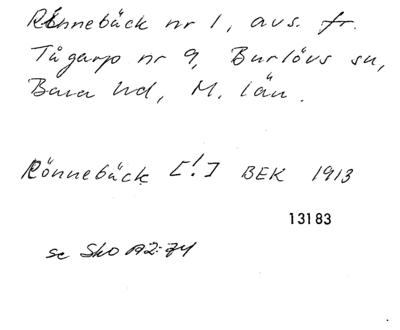 Rönnebäck nr 1, avs. fr.
Tågarp nr 9, Burlövs sn,
Bara hd, M. län.
Rönnebäck [!] BEK 1913
13183
se Sko A2:74